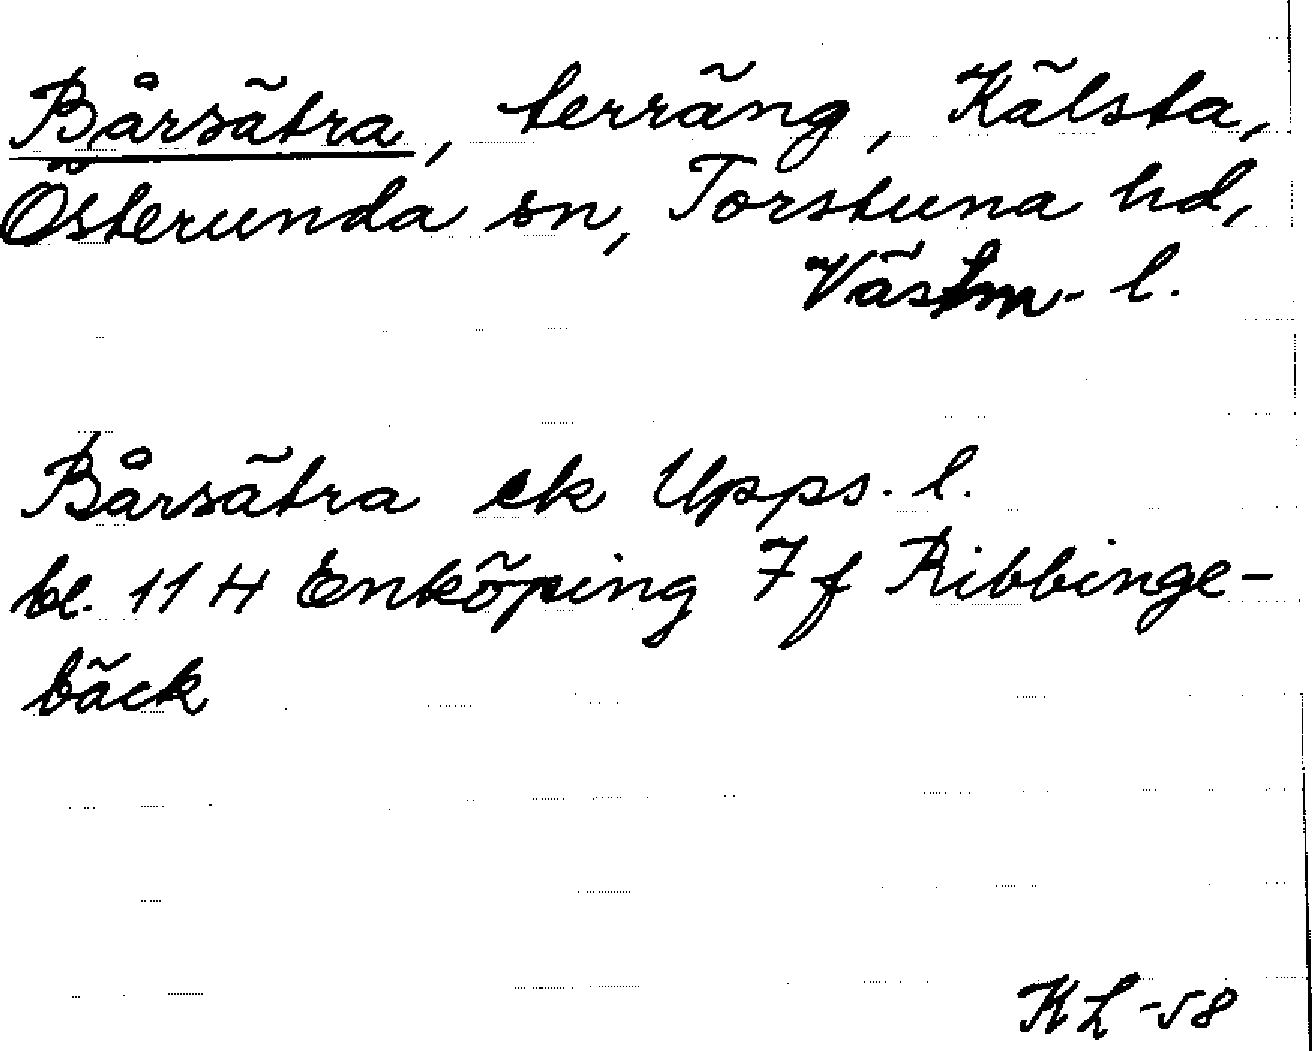 Bårsätra, terräng, Kälsta,
Österunda sn, Torstuna hd,
Västm. l.
Bårsätra ek Upps. l.
bl. 11 H Enköping 7 f Ribbinge-
bäck
KL -58